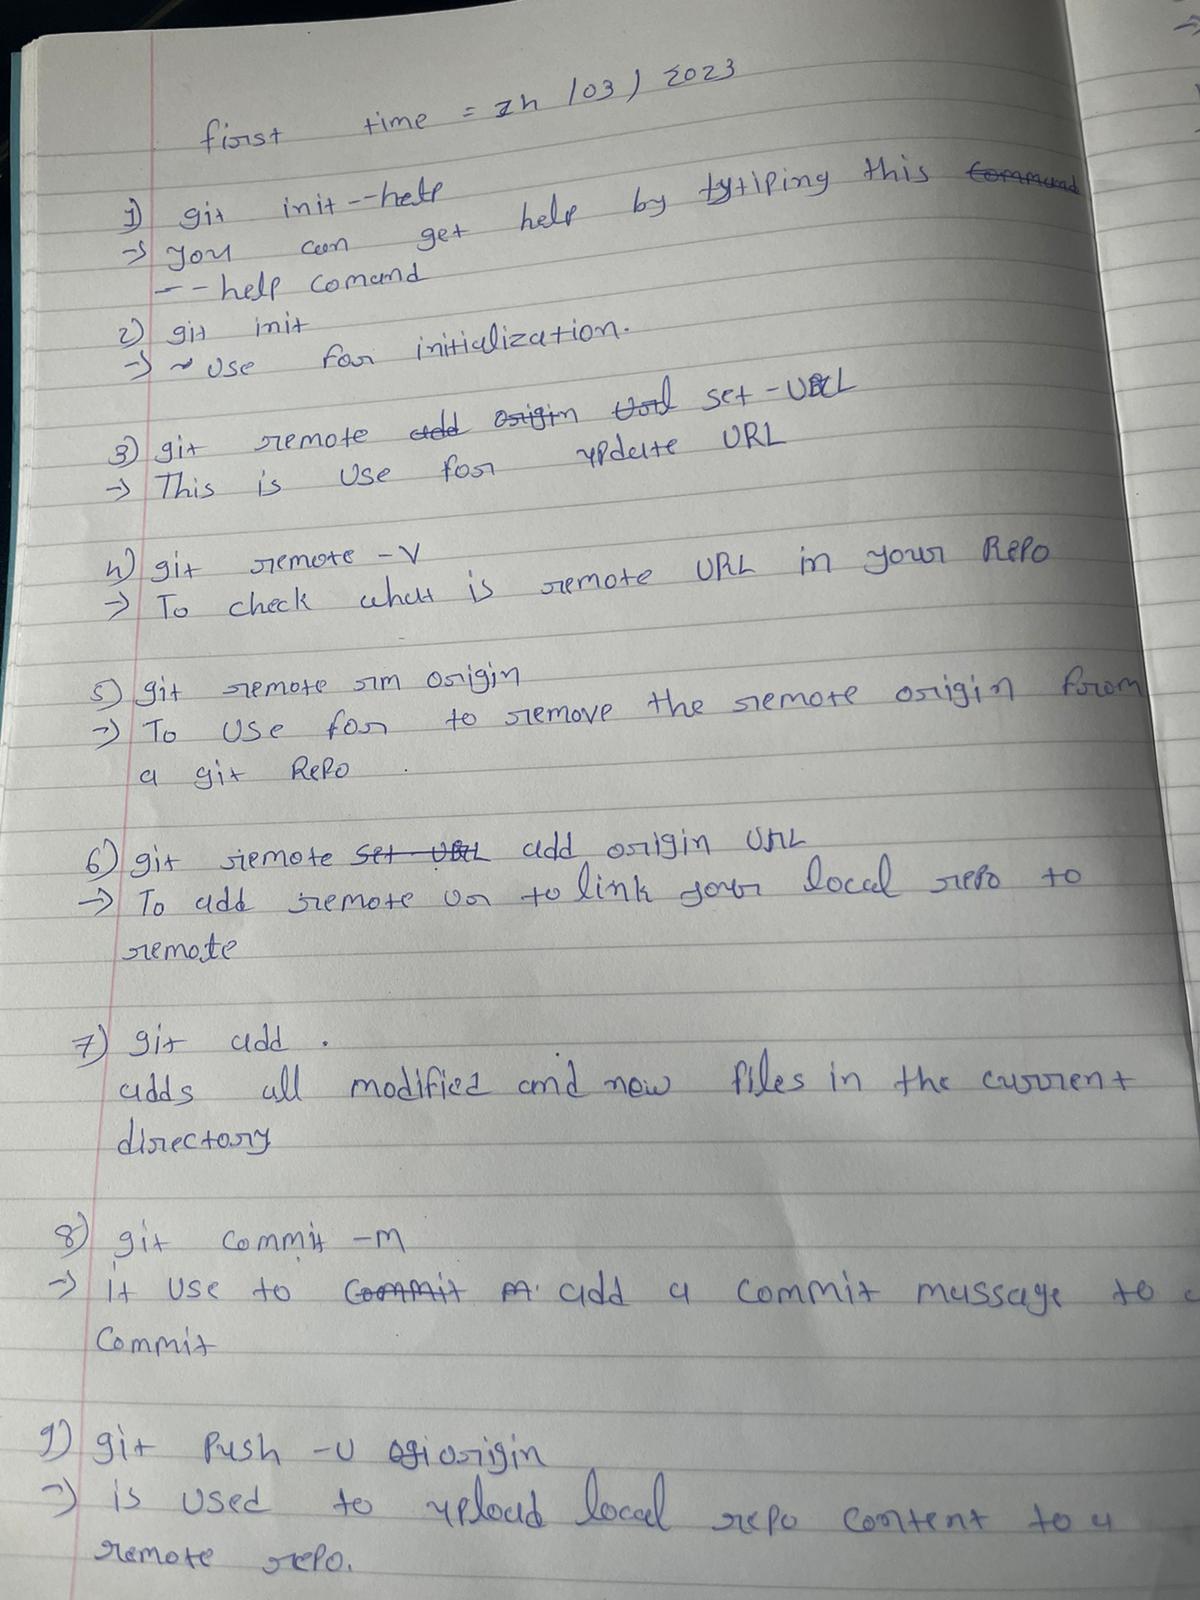 first time = 24/03/2023
1) git init --help
→ you can get help by tytiping this
--help comand
2) git init
→ ~ Use for initialization.
3) git remote add origin Url set-URL
→ This is Use for update URL
4) git remote -V
→ To check what is remote URL in your Repo
5) git remote rm origin
→ To Use for to remove the remote origin from
a git Repo
6) git remote set-URL add origin URL
→ To add remote or to link your local repo to
remote
7) git add .
adds all modified and new files in the current
directory
8) git commit -m
→ it use to commit m add a commit massage to
Commit
9) git Push -u origin
→ is used to upload local repo content to a
remote repo.